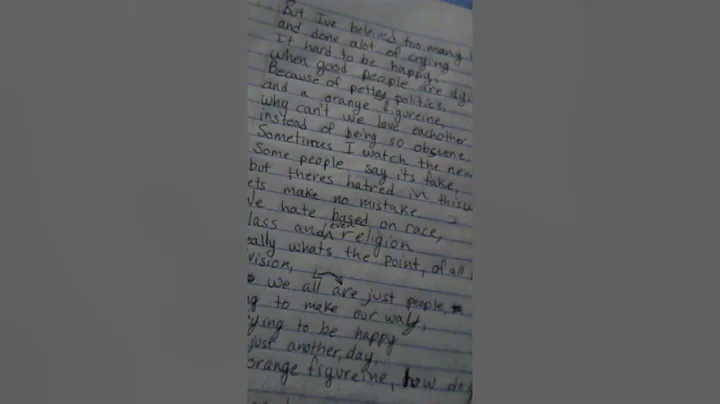 But I've belived too many
and done alot of crying
It hard to be happy,
when good people are dyi
Because of pettey politics,
and a orange figureine,
why can't we love eachother
instead of being so obscene.
Sometimes I watch the new
Some people say its fake,
but theres hatred in this
ets make no mistake
e hate based on race,
lass and even religion
eally whats the point, of all
vision,
e we all are just people,
g to make our way,
ying to be happy
just another, day,
orange figureine, how do